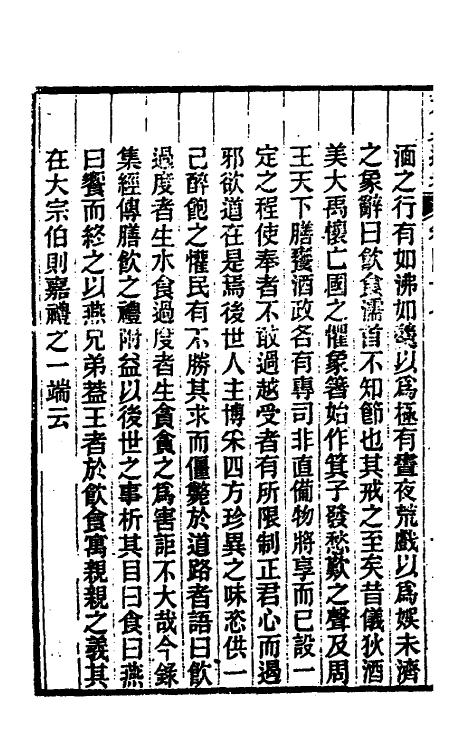 湎之行有如沸如羹以爲極有晝夜荒戲以爲娛未濟
之象辭曰飲食濡首不知節也其戒之至矣昔儀狄酒
美大禹懷亡國之懼象箸始作箕子發愁歎之聲及周
王天下膳饔酒政各有專司非直備物將享而已設一
定之程使奉者不敢過越受者有所限制正君心而遏
邪欲道在是焉後世人主博采四方珍異之味恣供一
己醉飽之懽民有不勝其求而僵斃於道路者語曰飲
過度者生水食過度者生貪貪之爲害詎不大哉今錄
集經傳膳飲之禮附益以後世之事析其目曰食曰燕
曰饗而終之以燕兄弟葢王者於飲食寓親親之義其
在大宗伯則嘉禮之一端云